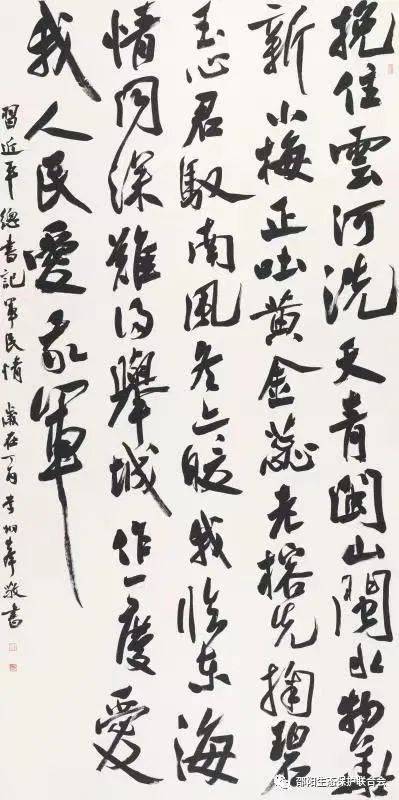 挽住雲河洗天青閩山閩水物華
新小梅正吐黄金蕊老榕先掬碧
玉心君馭南風冬亦暖我临东海
情同深難得舉城作一慶愛
我人民愛我軍
習近平總書記軍民情 歲在丁酉 敬書
邵阳生态保护联合会